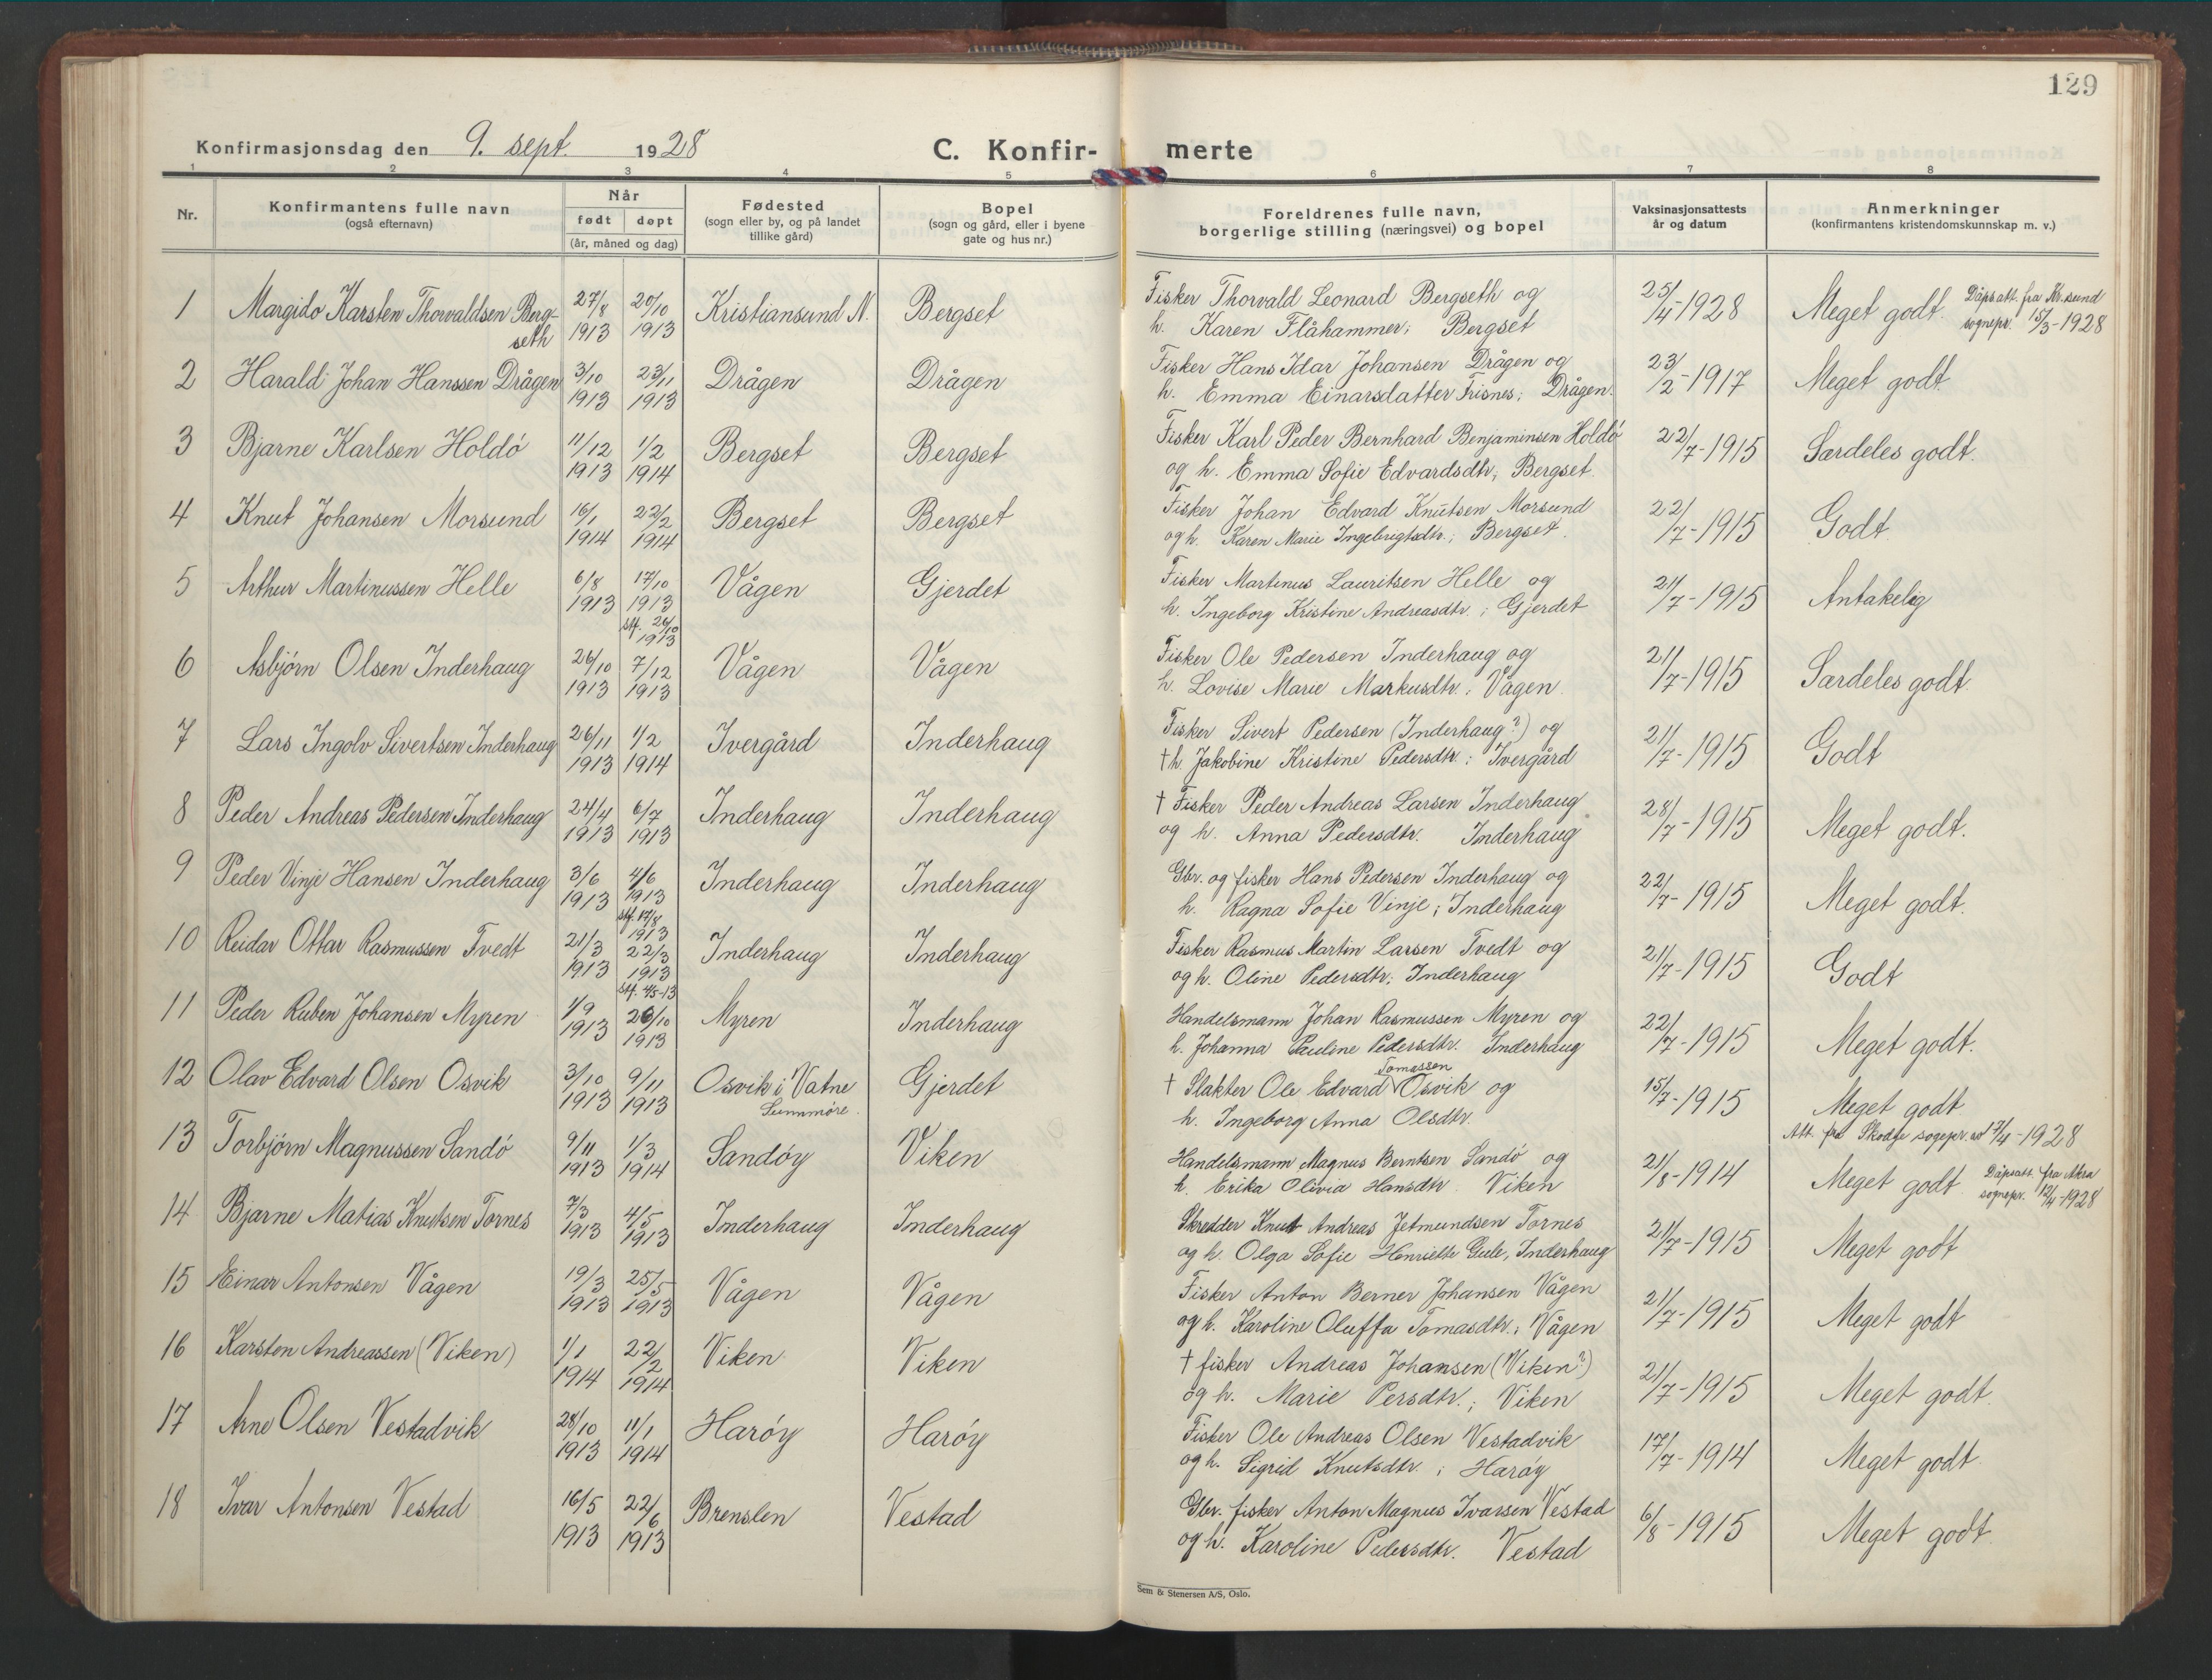 129
Konfirmasjonsdag den 9. sept. 1928 C. Konfir- merte
1 2 3 4 5 6 7 8
Nr. Konfirmantens fulle navn (også efternavn) Når født døpt (år, måned og dag) Fødested (sogn eller by, og på landet tillike gård) Bopel (sogn og gård, eller i byene gate og hus nr.) Foreldrenes fulle navn, borgerlige stilling (næringsvei) og bopel Vaksinasjonsattests år og datum Anmerkninger (konfirmantens kristendomskunnskap m. v.)
1 Margido Karsten Thorvaldsen Berg- 27/8 20/10 Kristiansund N. Bergset Fisker Thorvald Leonard Bergseth og 25/4-1928 Meget godt. Dåpsatt. fra Kr.sund
seth 1913 1913 h. Karen Flåhammer; Bergset sognepr. 15/3-1928
2 Harald Johan Hanssen Drågen 3/10 23/11 Drågen Drågen Fisker Hans Idar Johansen Drågen og 23/2-1917 Meget godt.
1913 1913 h. Emma Einarsdatter Frisnes; Drågen.
3 Bjarne Karlsen Holdø 11/12 1/2 Bergset Bergset Fisker Karl Peder Bernhard Benjaminsen Holdø 22/7-1915 Særdeles godt.
1913 1914 og h. Emma Sofie Edvardsdtr; Bergset.
4 Knut Johansen Morsund 16/1 22/2 Bergset Bergset Fisker Johan Edvard Knutsen Morsund 22/7-1915 Godt.
1914 1914 og h. Karen Marie Ingebrigtsdtr.; Bergset.
5 Arthur Martinussen Helle 6/8 17/10 Vågen Gjerdet Fisker Martinus Lauritsen Helle og 21/7-1915 Antakelig
1913 1913 h. Ingeborg Kristine Andreasdtr.; Gjerdet
stf. 26/10 1913
6 Asbjørn Olsen Inderhaug 26/10 7/12 Vågen Vågen Fisker Ole Pedersen Inderhaug og 21/7-1915 Særdeles godt.
1913 1913 h. Lovise Marie Markusdtr.; Vågen.
7 Lars Ingolv Sivertsen Inderhaug 26/11 1/2 Ivergård Inderhaug Fisker Sivert Pedersen (Inderhaug?) og 21/7-1915 Godt
1913 1914 † h. Jakobine Kristine Pedersdtr.; Ivergård
8 Peder Andreas Pedersen Inderhaug 24/4 6/7 Inderhaug Inderhaug † Fisker Peder Andreas Larsen Inderhaug 28/7-1915 Meget godt.
1913 1913 og h. Anna Pedersdtr. Inderhaug
9 Peder Vinje Hansen Inderhaug 3/6 4/6 Inderhaug Inderhaug Gbr. og fisker Hans Pedersen Inderhaug og 22/7-1915 Meget godt.
1913 1913 h. Ragna Sofie Vinje; Inderhaug
stf. 17/8 1913
10 Reidar Ottar Rasmussen Tvedt 21/3 22/3 Inderhaug Inderhaug Fisker Rasmus Martin Larsen Tvedt og 21/7-1915 Godt
1913 1913 og h. Oline Pedersdtr; Inderhaug
stf. 4/5-13
11 Peder Ruben Johansen Myren 1/9 26/10 Myren Inderhaug Handelsmann Johan Rasmussen Myren og 22/7-1915 Meget godt.
1913 1913 h. Johanna Pauline Pedersdtr. Inderhaug
12 Olav Edvard Olsen Osvik 3/10 9/11 Osvik i Vatne Gjerdet † Slakter Ole Edvard Tomassen Osvik og 15/7-1915 Meget godt
1913 1913 Sunnmøre. h. Ingeborg Anna Olsdtr. Att. fra Skodje sogepr. av 17/4-1928
13 Torbjørn Magnussen Sandø 9/11 1/3 Sandøy Viken Handelsmann Magnus Berntsen Sandø og 21/8-1914 Meget godt Dåpsatt. fra
1913 1914 h. Erika Olivia Hansdtr. Viken sognepr. 12/4-1928
14 Bjarne Matias Knutsen Tornes 7/3 4/5 Inderhaug Inderhaug Skredder Knut Andreas Jetmundsen Tornes 21/7-1915 Meget godt
1913 1913 og h. Olga Sofie Henriette Gule, Inderhaug
15 Einar Antonsen Vågen 19/3 25/5 Vågen Vågen Fisker Anton Berner Johansen Vågen 21/7-1915 Meget godt
1913 1913 og h. Karoline Oluffa Tomasdtr.; Vågen
16 Karsten Andreassen (Viken) 1/1 22/2 Viken Viken † fisker Andreas Johansen (Viken?) 21/7-1915 Meget godt.
1914 1914 og h. Marie Persdtr.; Viken
17 Arne Olsen Vestadvik 28/10 11/1 Harøy Harøy Fisker Ole Andreas Olsen Vestadvik 17/7-1914 Meget godt.
1913 1914 og h. Sigrid Knutsdtr.; Harøy
18 Ivar Antonsen Vestad 16/5 22/6 Brenslen Vestad Gbr. fisker Anton Magnus Ivarsen Vestad 6/8-1915 Meget godt.
1913 1913 og h. Karoline Pedersdtr. Vestad
Sem & Stenersen A/S, Oslo.